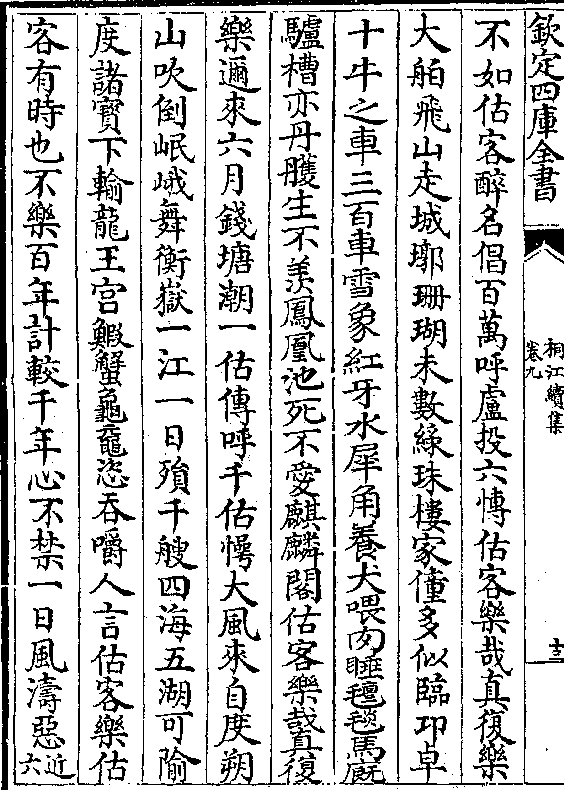 欽定四庫全書
桐江續集
卷九
十二
不如估客醉名倡百萬呼盧投六慱估客樂哉真復樂
大舶飛山走城郭珊瑚未數綠珠樓家僮多似臨邛卓
十牛之車三百車雪象紅牙水犀角養犬喂肉睡氊毯馬廐
驢槽亦丹雘生不羨鳳凰池死不愛麒麟閣估客樂哉真復
樂邇來六月錢塘潮一估傳呼千估愕大風來自度朔
山吹倒岷峨舞衡嶽一江一日殞千艘四海五湖可隃
度諸寳下輸龍王宫鰕蟹龜黿恣吞嚼人言估客樂估
客有時也不樂百年計較千年心不禁一日風濤惡近六